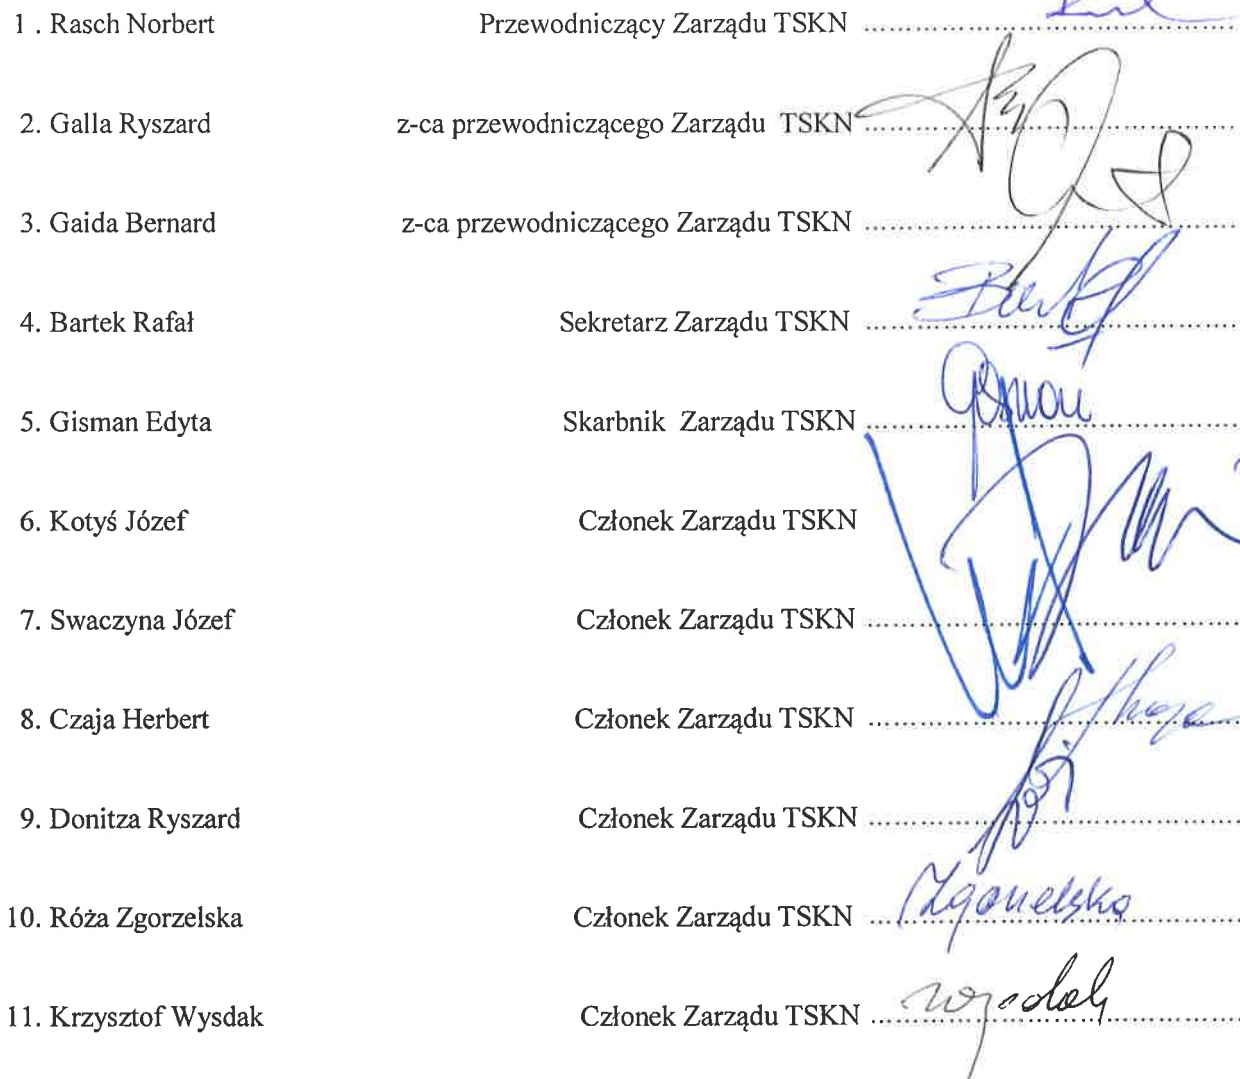 1 . Rasch Norbert Przewodniczący Zarządu TSKN ...............
2. Galla Ryszard z-ca przewodniczącego Zarządu TSKN ...............
3. Gaida Bernard z-ca przewodniczącego Zarządu TSKN ...............
4. Bartek Rafał Sekretarz Zarządu TSKN ...............
5. Gisman Edyta Skarbnik Zarządu TSKN ...............
6. Kotyś Józef Członek Zarządu TSKN
7. Swaczyna Józef Członek Zarządu TSKN ...............
8. Czaja Herbert Członek Zarządu TSKN ...............
9. Donitza Ryszard Członek Zarządu TSKN ...............
10. Róża Zgorzelska Członek Zarządu TSKN ............... Zgorzelska
11. Krzysztof Wysdak Członek Zarządu TSKN ............... Wysdak